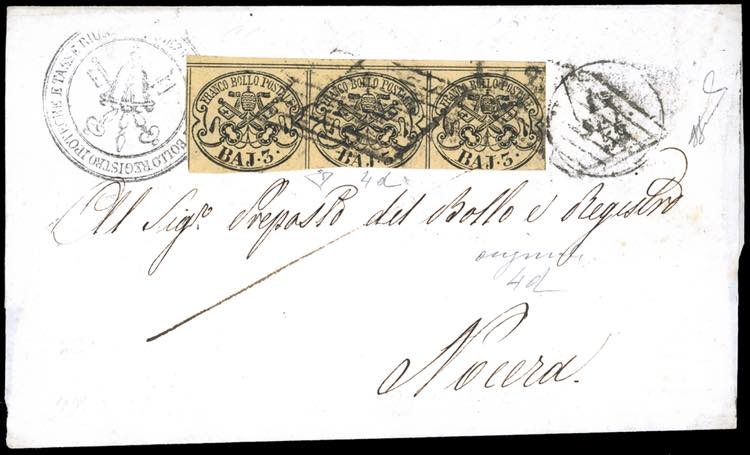 BOLLO REGISTRO IPOTECHE E TASSE RIUN
FRANCO BOLLO POSTALE FRANCO BOLLO POSTALE FRANCO BOLLO POSTALE
BAJ. 3. BAJ. 3. BAJ. 3.
4d
Al Sigr. Preposto del Bollo e Registro
4d
Nocera.